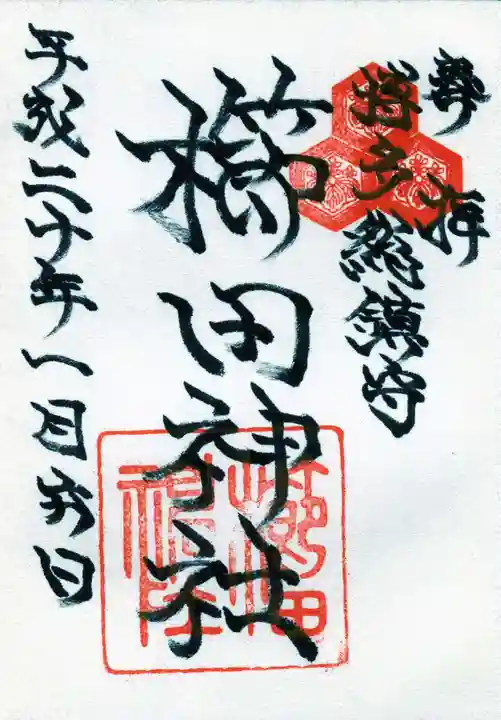 奉拝
博多総鎮守
櫛田神社
平成二十年一月六日
櫛田神社